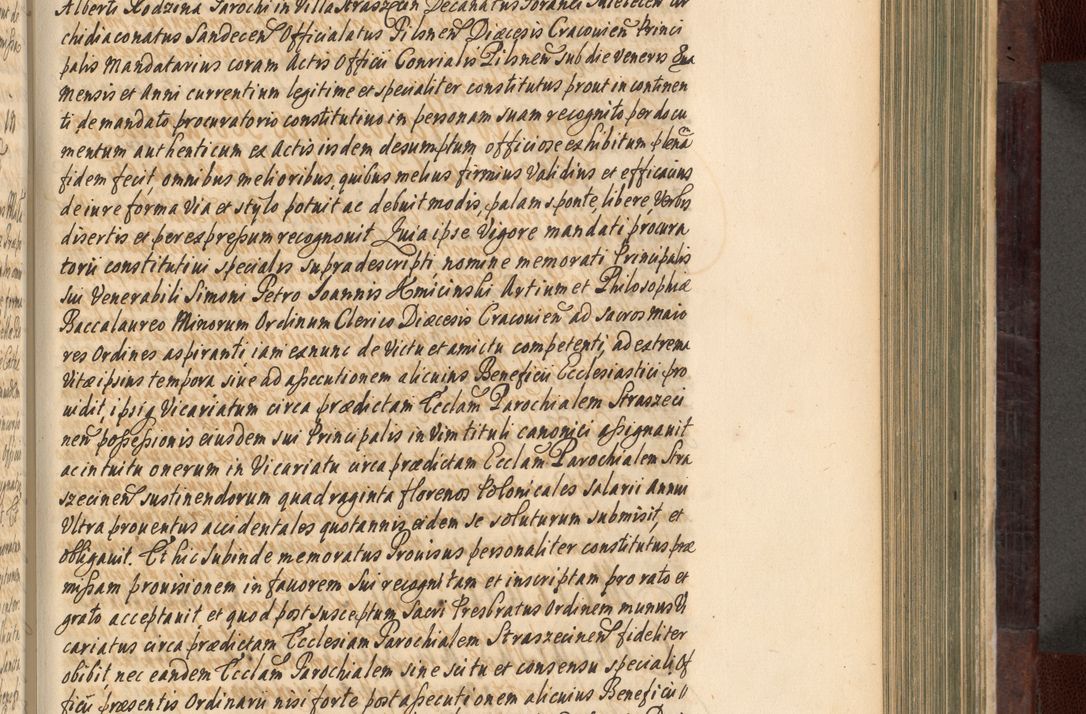 Alberti Kodzina Parochi in Villa Straszecin Decanatus Foranei Mielecen Ar
chidiaconatus Sandecen Officialatus Pilsnen Diæcesis Cracovien Princi
palis Mandatarius coram Actis Officii Conrialis Pilsnen sub die Veneris
Mensis et Anni currentium legitime et specialiter constitutus prout in continen
ti de mandato procuratorio constitutivo in personam suam recognito per docu
mentum authenticum ex Actis iisdem desumptum officiose exhibitum plenã
fidem fecit, omnibus melioribus, quibus melius firmius Validius et efficacius
de iure forma Via et stylo potuit ac debuit modis, palam sponte, libere, Verbis
disertis et per expressum recognovit Quia ipse Vigore mandati procura
torii constitutivi specialis supradescripti nomine memorati Principalis
sui Venerabili Simoni Petro Joannis Hmicinski Artium et Philosophiæ
Baccalaureo Minorum Ordinum Clerico Diæcesis Cracovien ad sacros maio
res Ordines aspiranti iam exnunc de Victu et amictu competenti, ad extrema
Vitæ ipsius tempora sive ad assecutionem alicuius Beneficii Ecclesiastici pro
vidit, ipsiq Vicariatum circa prædictam Ecclam Parochialem Straszeci
nen possessionis eiusdem sui Principalis in Vim tituli canonici assignavit
ac intuitu onerum in Vicariatu circa prædictam Ecclam Parochialem Stra
szecinen sustinendorum quadraginta florenos Polonicales salarii Annui
Ultra proventus accidentales quotannis eidem se soluturum submisit, et
obligavit. Et hic subinde memoratus Provisus personaliter constitutus præ
missam provisionem in favorem sui recognitam et inscriptam pro rato et
grato acceptavit et quod post susceptum Sacri Presbratus Ordinem munus Vi
cariatus circa prædictam Ecclesiam Parochialem Straszecinen fideliter
obibit nec eandem Ecclam Parochialem sine scitu et consensu speciali Of
ficii præsentis Ordinarii nisi forte post assecutionem alicuius Beneficii